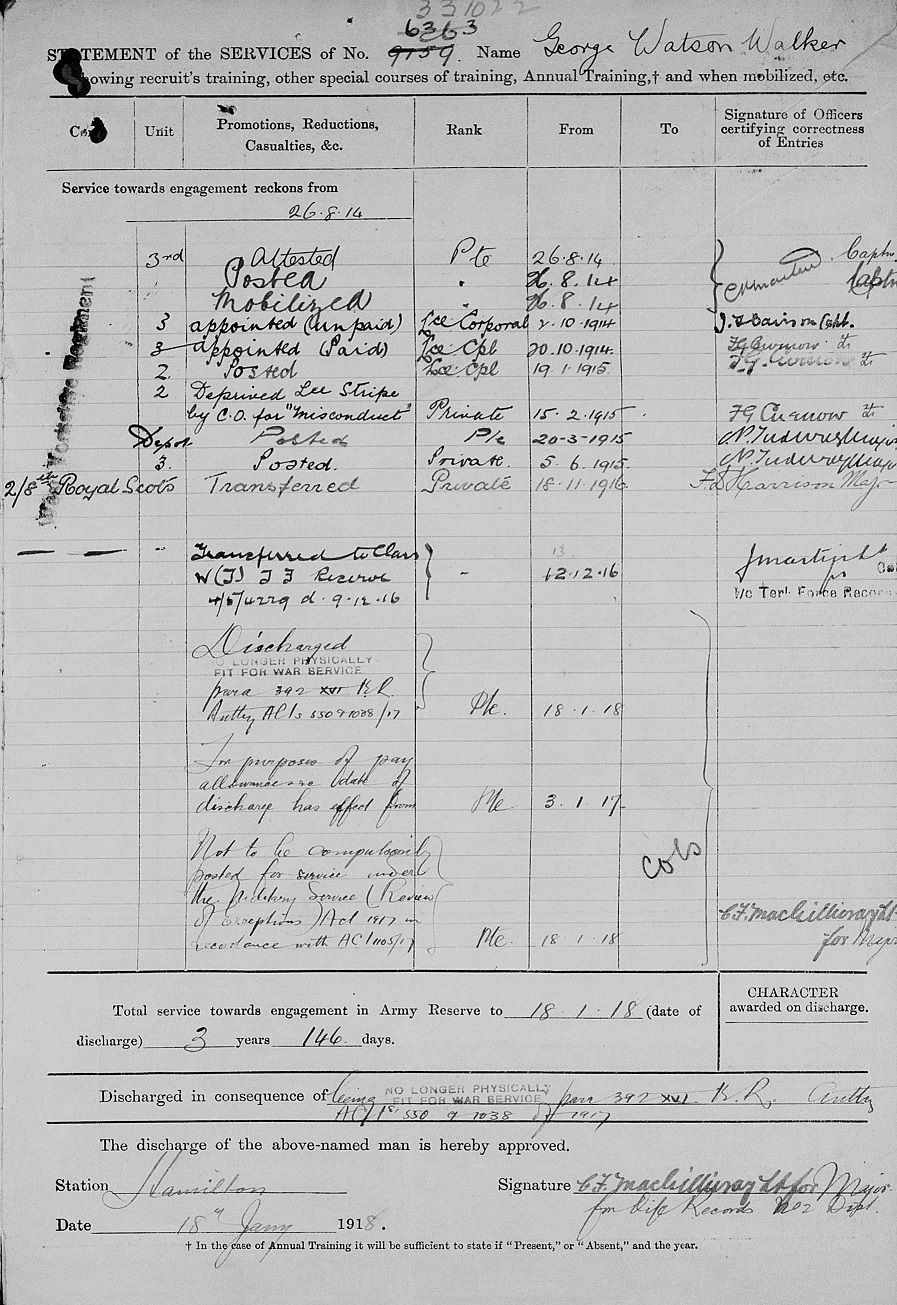 331022
6363
STATEMENT of the SERVICES of No. 9159 Name George Watson Walker
showing recruit's training, other special courses of training, Annual Training,† and when mobilized, etc.
Corps Unit Promotions, Reductions, Casualties, &c. Rank From To Signature of Officers certifying correctness of Entries
Service towards engagement reckons from
26.8.14
West Yorkshire Regiment
3rd Attested Pte 26.8.14 Captn
Posted " 26.8.14 Captn
Mobilized " 26.8.14
3 appointed (unpaid) Lce Corporal 2.10.1914 Capt.
3 appointed (Paid) Lce Cpl 20.10.1914 Lt
2 Posted Lce Cpl 19.1.1915 Lt
2 Deprived Lce Stripe
by C.O. for "Misconduct" Private 15.2.1915 Lt
Depot Posted Pte 20-3-1915 Major
3. Posted. Private. 5.6.1915. Major
2/8th Royal Scots Transferred Private 18.11.1916. Harrison Major
— — " Transferred to Class
W(T) T F Reserve - 12.12.16
4/5/4229 d. 9.12.16
i/c Terl Force Records
Discharged
NO LONGER PHYSICALLY
FIT FOR WAR SERVICE
para 392 XVI K.R.
Authy ACIs 550 & 1038/17 Pte. 18.1.18
For purposes of pay
allowances date of
discharge has effect from Pte 3.1.17
Not to be compulsorily
posted for service under
the Military Service (Review
of Exceptions) Act 1917 in C.F. MacGillivray Lt
accordance with ACI 1105/17 Pte. 18.1.18 for Major
Total service towards engagement in Army Reserve to 18.1.18 (date of
discharge) 3 years 146 days.
CHARACTER
awarded on discharge.
Discharged in consequence of being NO LONGER PHYSICALLY FIT FOR WAR SERVICE para 392 XVI K.R. Authy
ACIs 550 & 1038 of 1917
The discharge of the above-named man is hereby approved.
Station Hamilton Signature C.F. MacGillivray Lt for Major
for Records No 2 Dist.
Date 18th Jany 1918.
† In the case of Annual Training it will be sufficient to state if "Present," or "Absent," and the year.